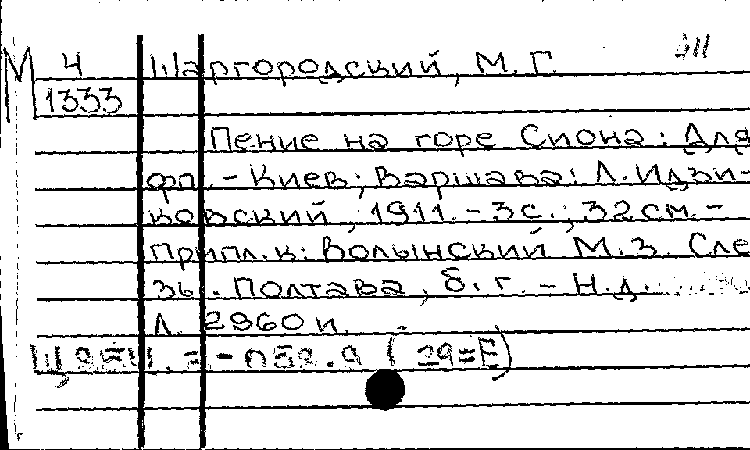 М 4 Шаргородский, М. Г.
1333
Пение на горе Сиона: Для
фп. - Киев; Варшава: Л. Идзи-
ковский, 1911. - 3 с.; 32 см. -
Прилп. к: Волынский М. З. Сле-
зы. Полтава, б. г. - Н. д.
Л. 2960 и.